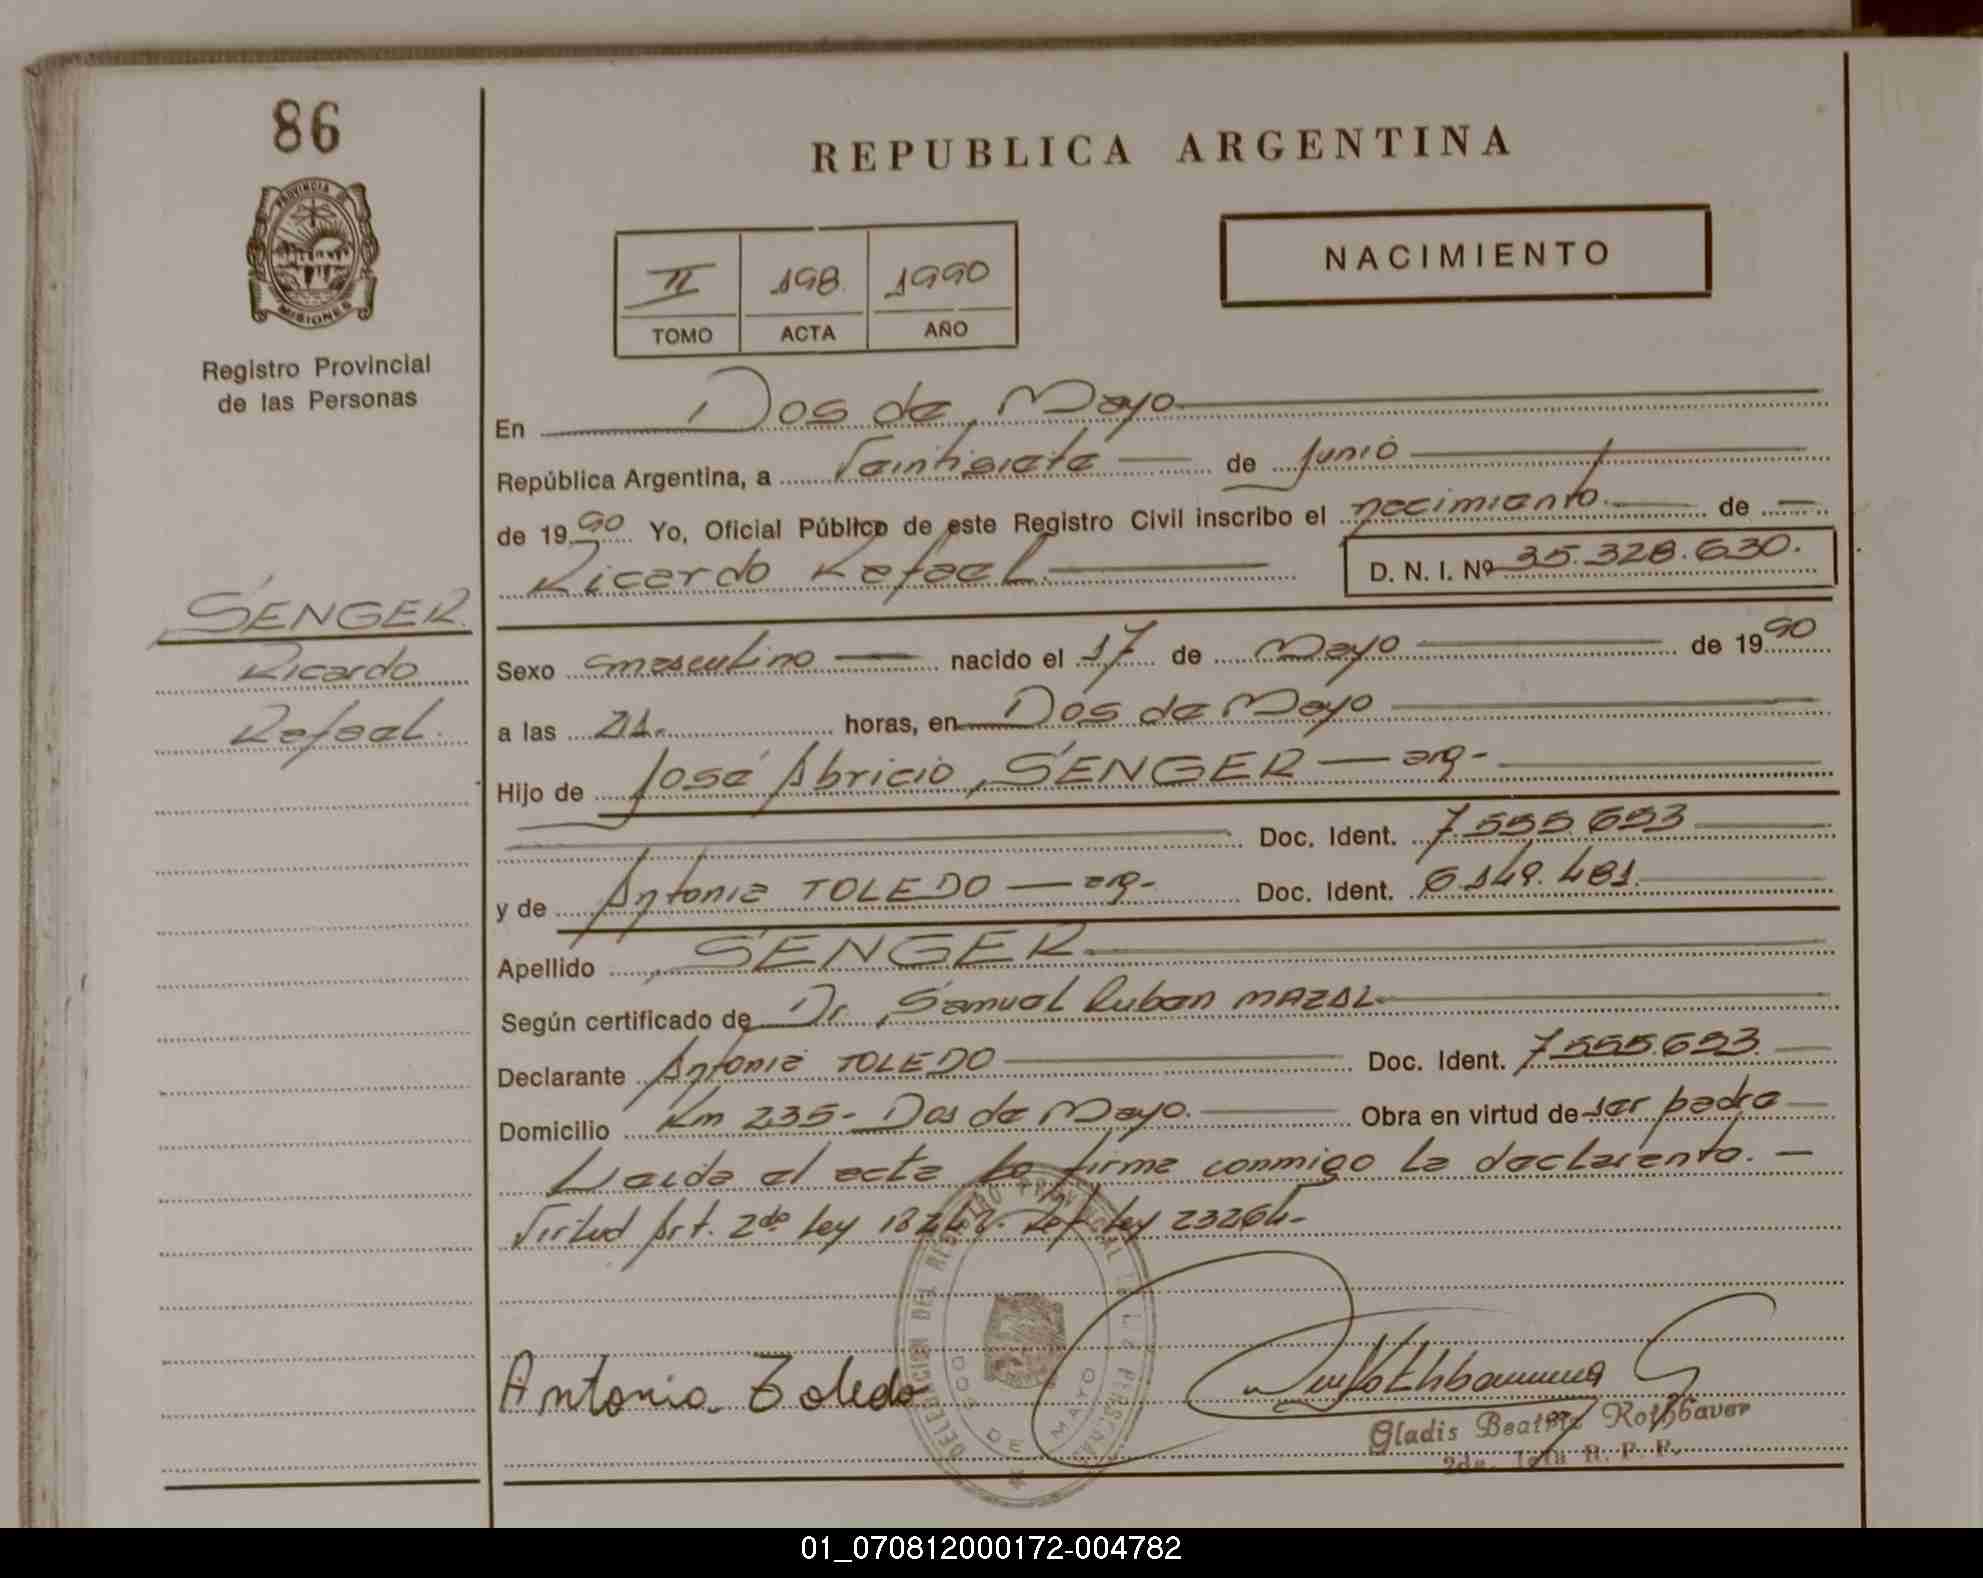 86
PROVINCIA DE
MISIONES
Registro Provincial
de las Personas
SENGER
Ricardo
Rafael
REPUBLICA ARGENTINA
II 198 1990
TOMO ACTA AÑO
NACIMIENTO
En Dos de Mayo
República Argentina, a Veintisiete de Junio
de 1990 Yo, Oficial Público de este Registro Civil inscribo el nacimiento de
Ricardo Rafael D. N. I. Nº 35.328.630.
Sexo masculino nacido el 17 de Mayo de 1990
a las 21 horas, en Dos de Mayo
Hijo de José Abricio SENGER - arg-
Doc. Ident. 7.555.653
y de Antonia TOLEDO - arg- Doc. Ident. 6.149.481.
Apellido SENGER
Según certificado de Dr. Samuel Ruben MAZAL
Declarante Antonia TOLEDO Doc. Ident. 7.555.653
Domicilio Km 235- Dos de Mayo. Obra en virtud de ser padre
Leida el acta la firma conmigo la declarente. -
Virtud Art. 2do Ley 18248. Ley 23264-
Antonia Toledo
DELEGACION DEL REGISTRO PROVINCIAL DE LAS PERSONAS
DOS DE MAYO
Gladis Beatriz Rothbaver
2da. Jefa R. P. P.
01_070812000172-004782